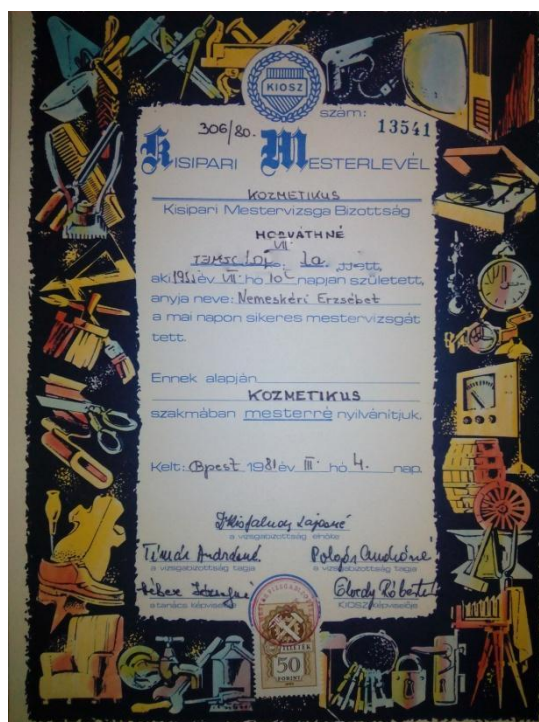 KIOSZ
szám:
306/80. 13541
KISIPARI MESTERLEVÉL
KOZMETIKUS
Kisipari Mestervizsga Bizottság
HORVÁTHNÉ
VII.
aki 19 év VII. hó 10 napján született,
anyja neve: Nemeskéri Erzsébet
a mai napon sikeres mestervizsgát
tett.
Ennek alapján
KOZMETIKUS
szakmában mesterré nyilvánítjuk.
Kelt: Bpest 1981 év III. hó 4. nap.
Kisfaludy Lajosné
a vizsgabizottság elnöke
Tímár Andrásné
a vizsgabizottság tagja a vizsgabizottság tagja
Róbert
a tanács képviselője KIOSZ képviselője
ILLETÉK
50
FORINT